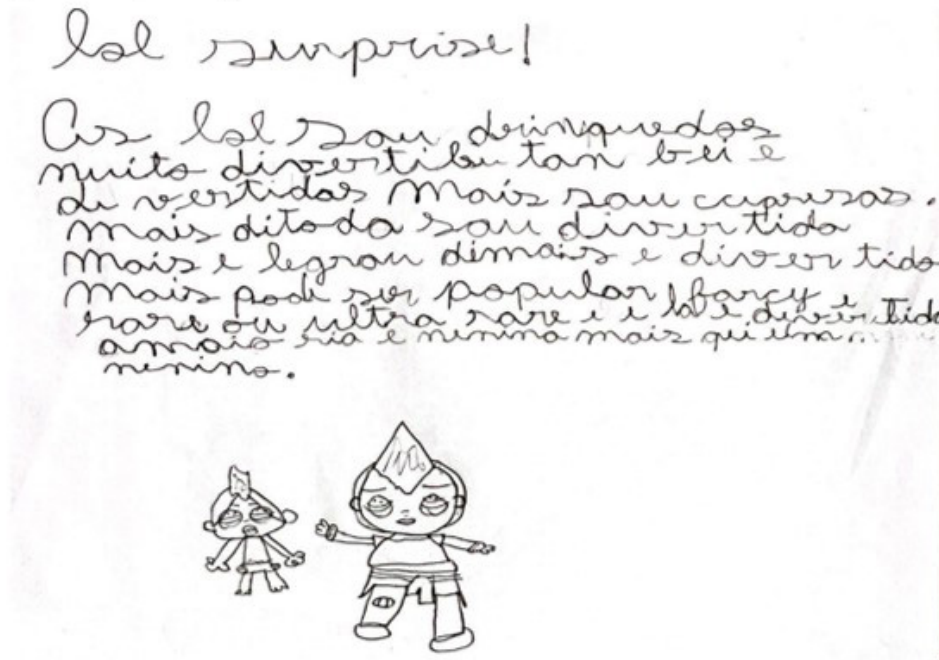 lol surprise!
As lol sau brinquedos
muito divertibu tan bei e
di vertidas mais sau cupusas.
mais ditoda sau divertida
mais e legrau dimais e diver tido
mais podi ser popular farcy e
rare ou ultra rare e i lol e diver tido
a maio ria e nenina mais qui uma
nenino.